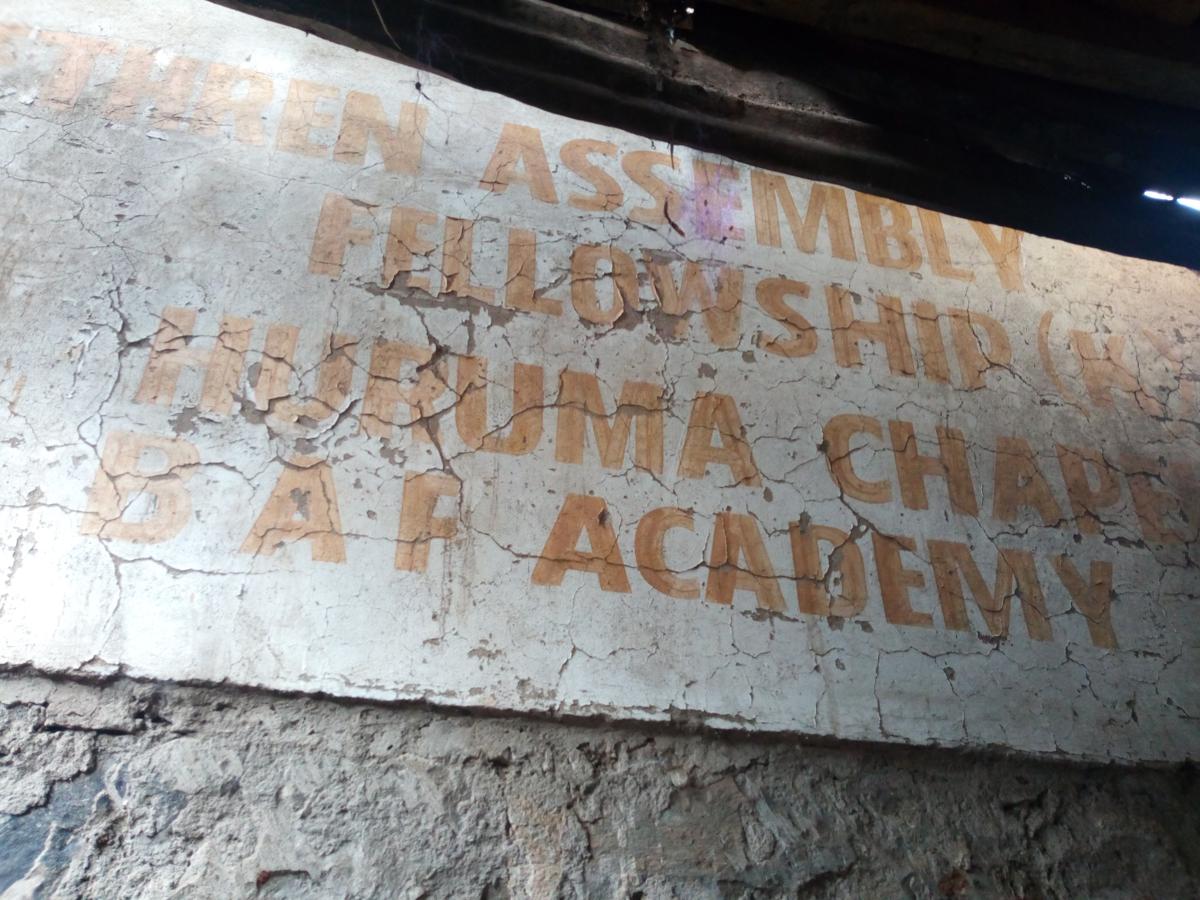 ETHREN ASSEMBLY
FELLOWSHIP (K
HURUMA CHAPE
B A F ACADEMY